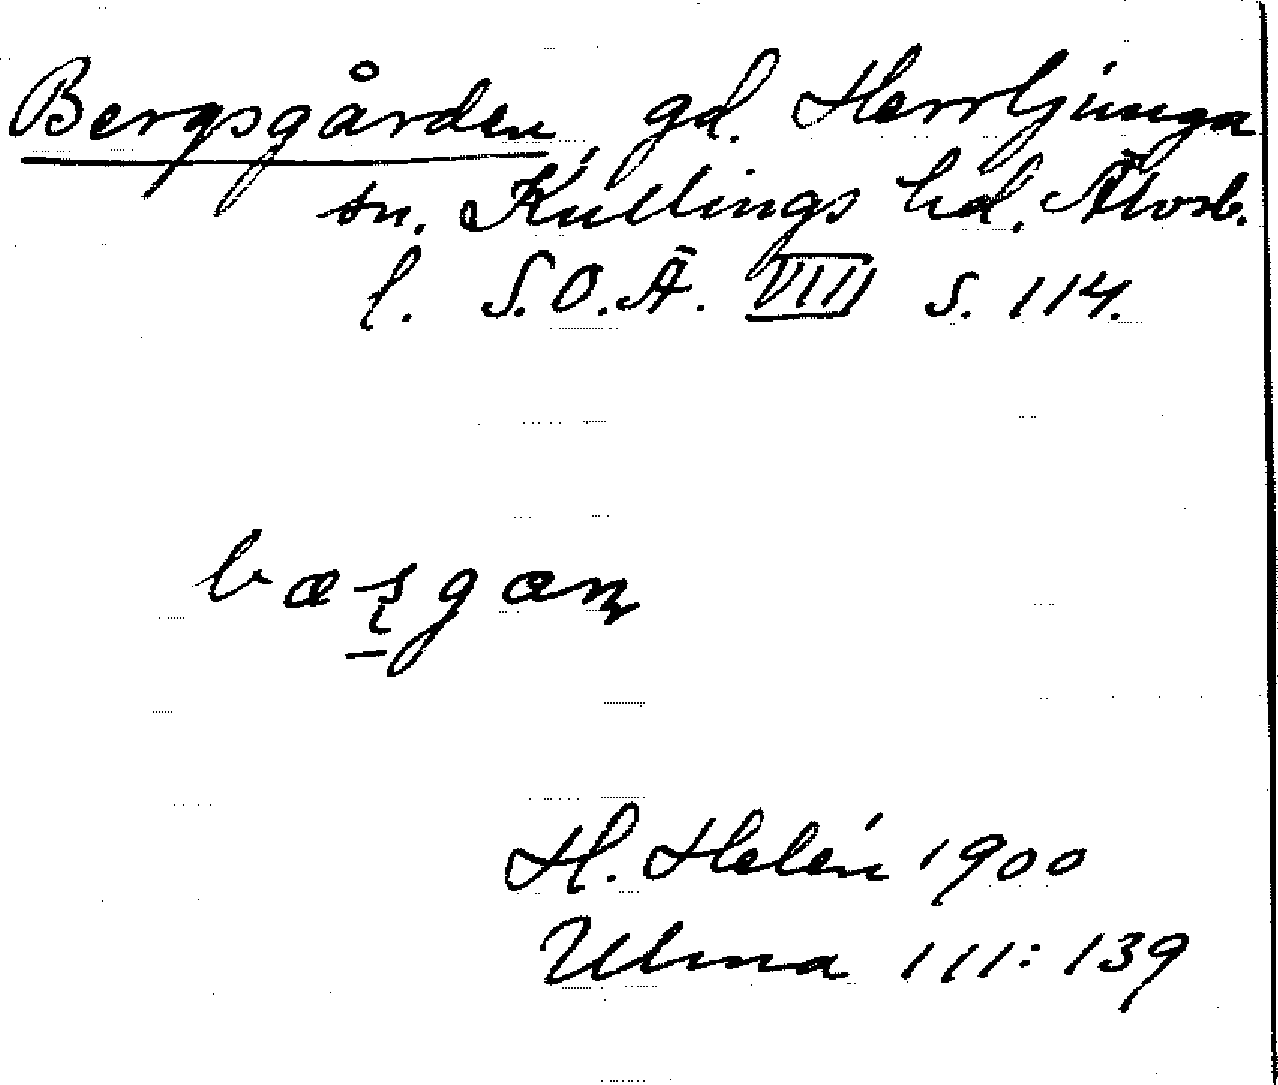 Bergsgården gd. Herrljunga
sn. Kullings hd. Älvsb.
l. S.O.Ä. VIII s. 114.
H. Helén 1900
Ulma 111:139